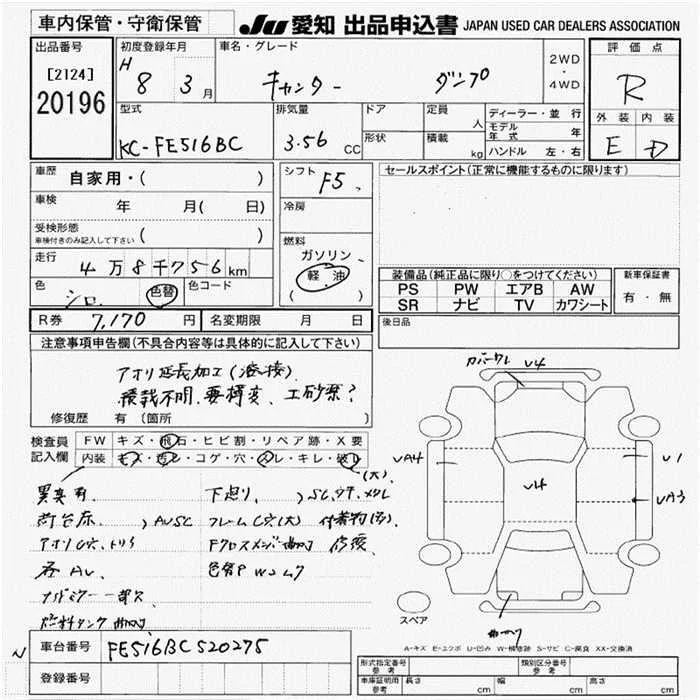 車内保管・守衛保管
JU 愛知 出品申込書 JAPAN USED CAR DEALERS ASSOCIATION
出品番号
[2124]
20196
初度登録年月
H 8 3月
車名・グレード
キャンター ダンプ
2WD
・
4WD
評価点
R
外装 内装
E D
型式
KC-FE516BC
排気量
3.56 CC
ドア
形状
定員 人
積載 kg
ディーラー・並行
モデル年式 年
ハンドル 左・右
車歴
自家用・( )
車検
年 月( 日)
受検形態
車検付きのみ記入して下さい ( )
走行
4万8千756km
色
シロ 色替
色コード
シフト
F5
冷房
燃料
ガソリン
軽油
( )
セールスポイント(正常に機能するものに限ります)
装備品(純正品に限り○をつけてください)
PS PW エアB AW
SR ナビ TV カワシート
新車保証書
有・無
R券 7,170円
名変期限 月 日
後日品
注意事項申告欄(不具合内容等は具体的に記入して下さい)
アオリ延長加工(溶接)
積載不明、要構変、
修復歴 有(箇所 )
検査員記入欄
FW キズ・飛石・ヒビ割・リペア跡・X要
内装 キズ・汚レ・コゲ・穴・スレ・キレ・破レ
(大)
異臭有
下廻り、
荷台床、
AUSC
アオリ
フレームC穴(大)
Fクロスメンバー曲り
修復
色替P W2ムラ
燃料タンク曲り
カバーワレ
U4
UA4
U4
U1
UA3
曲り
スペア
A-キズ E-エクボ U-凹み W-補修跡 S-サビ C-腐食 XX-交換済
N
車台番号
FE516BC520275
登録番号
形式指定番号
参考
類別区分番号
参考
車庫証明用
参考
長さ cm
幅 cm
高さ cm